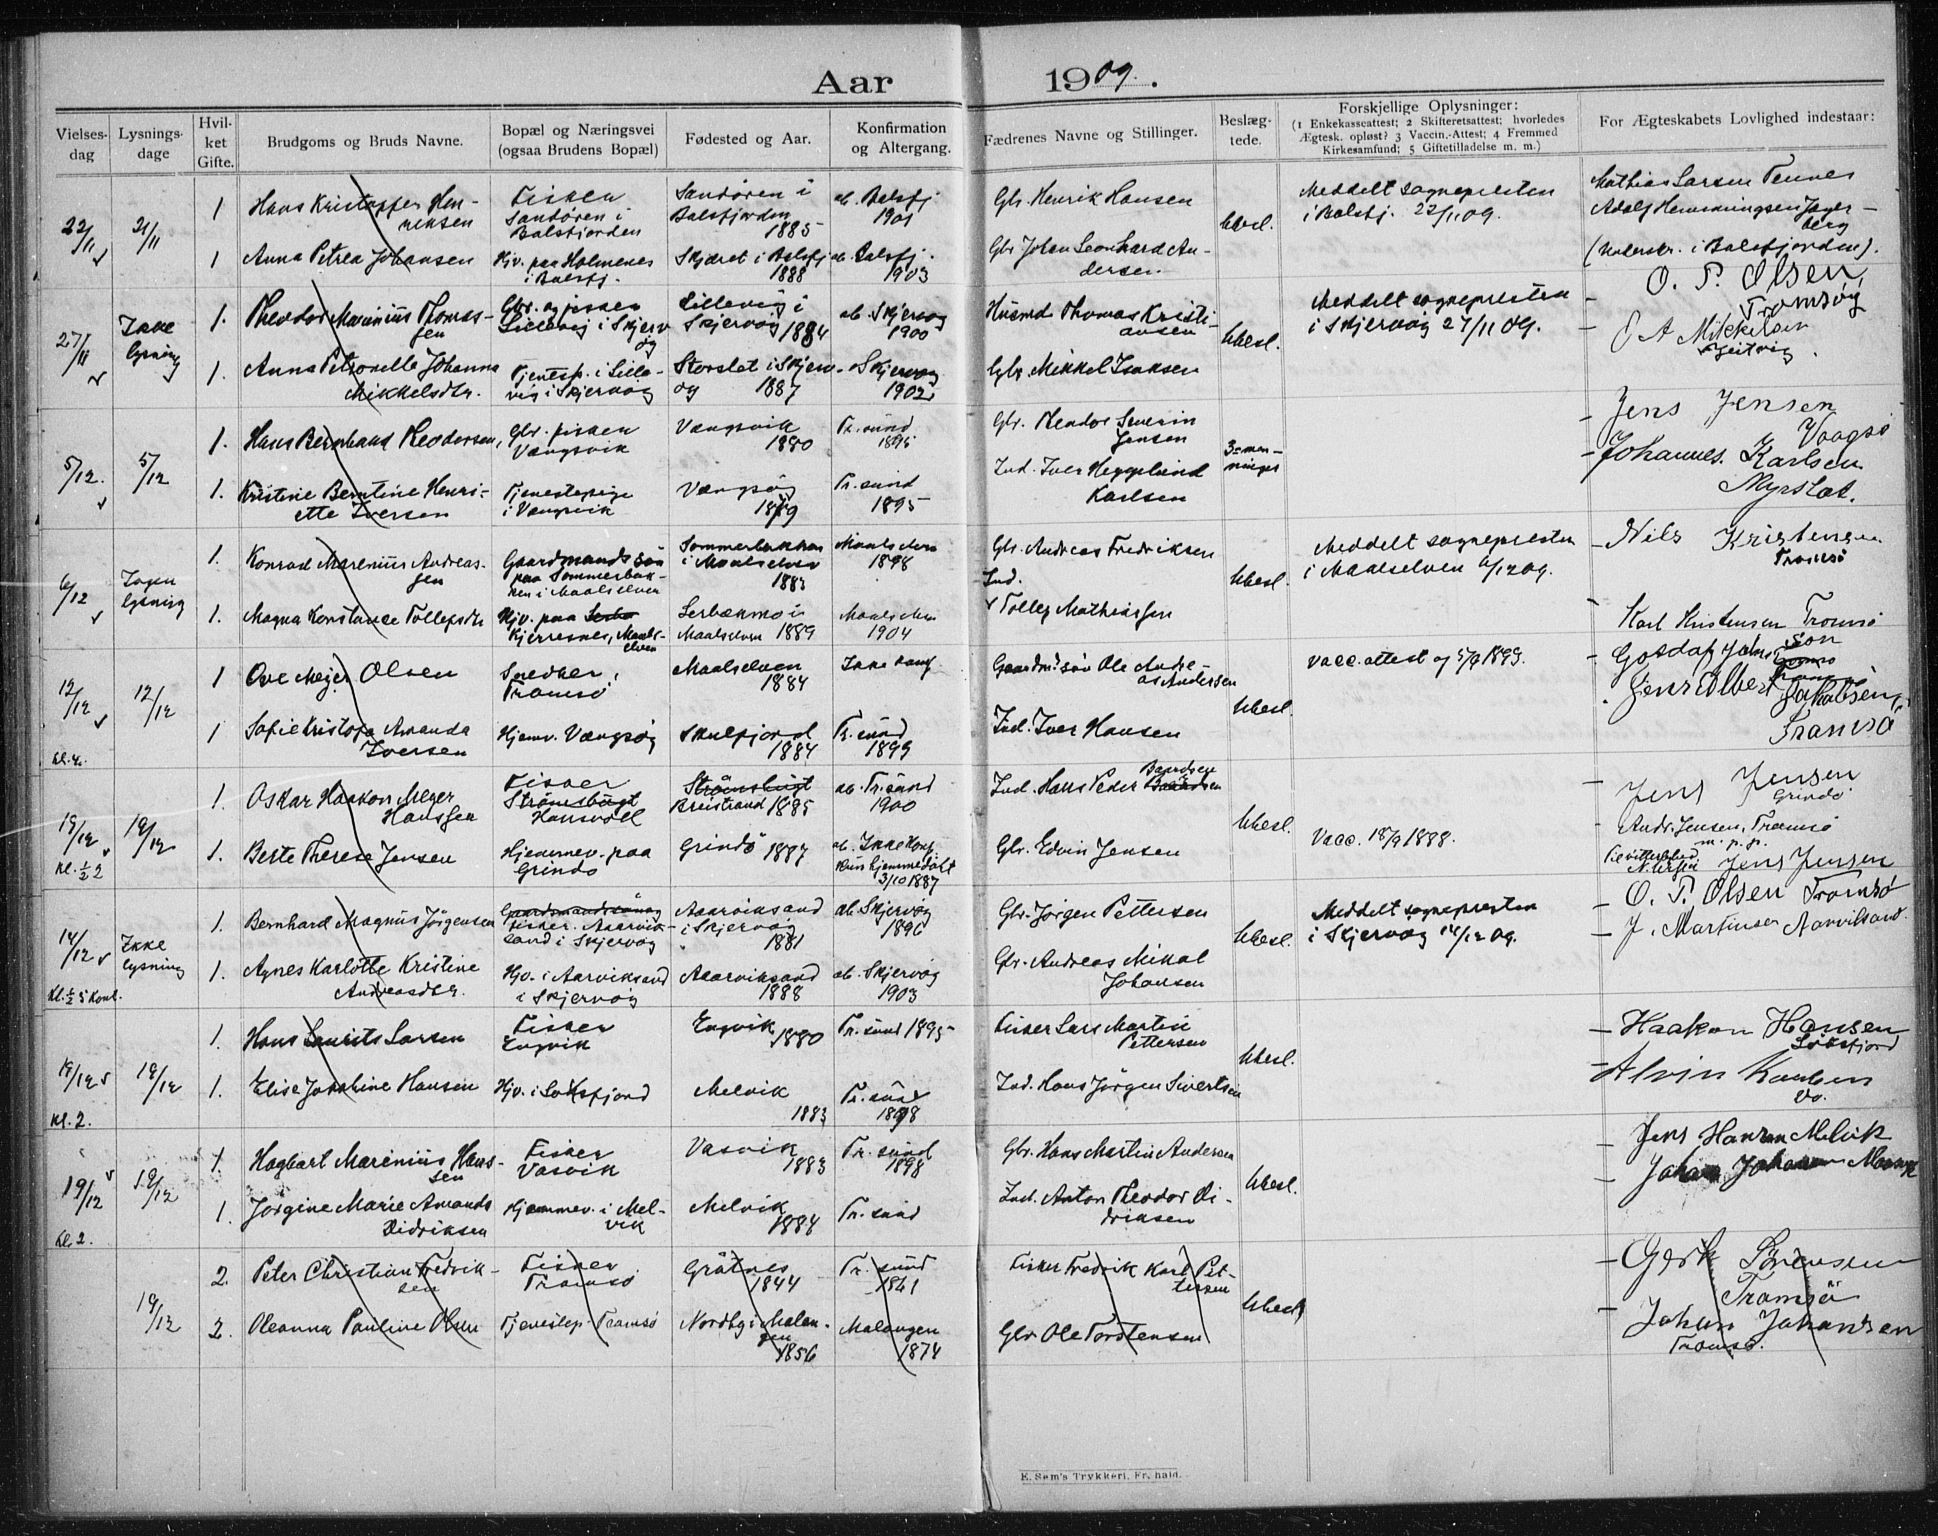 Aar 1909.
Vielses-dag
Lysnings-dage
Hvil-ket Gifte.
Brudgoms og Bruds Navne.
Bopæl og Næringsvei (ogsaa Brudens Bopæl)
Fødested og Aar.
Konfirmation og Altergang.
Fædrenes Navne og Stillinger.
Beslæg-tede.
Forskjellige Oplysninger: (1 Enkekasseattest; 2 Skifteretsattest; hvorledes Ægtesk. opløst? 3 Vaccin.-Attest; 4 Fremmed Kirkesamfund; 5 Giftetilladelse m. m.)
For Ægteskabets Lovlighed indestaar:
22/11 21/11
1 Hans Kristoffer Hen-
riksen
Fisker
Sandören i
Balsfjorden
Sandören i
Balsfjorden
1885
ab. Balsfj.
1901
Gbr. Henrik Hansen
Ubesl.
Meddelt sognepresten
i Balsfj. 22/11 09.
Mathias Larsen Tennes
Adolf Henningsen Jager-
berg
(Underskr. i Balsfjorden).
1 Anna Petrea Johansen
Hjv. paa Holmenes
i Balsfj.
Skjæret i Balsfj
1888
ab. Balsfj.
1903
Gbr Johan Leonhard An-
dersen.
27/11 Ikke
lysning
1. Theodor Marinius Thomas-
sen
Gbr. og fisker
Lillevig i Skjerv
ög
Lillevig i
Skjervög 1884
ab. Skjervög
1900
Husmd Thomas Kristi-
ansen
Ubesl.
Meddelt sognepresten
i Skjervög 27/11 09.
O. P. Olsen
Tromsö
O A Mikkelsen
1. Anna Petronelle Johanna
Mikkelsdtr.
Tjenesp. i Lille-
vig i Skjervög
Storslet i Skjerv-
ög 1887
Skjervög
1902
Gbr. Mikkel Isaksen
5/12. 5/12
1. Hans Bernhard Theodorsen,
Gbr. fisker
Vængsvik
Vængsvik
1880
Tr. sund
1895
Gbr. Theodor Severin
Jensen
3-men-
ninger
Jens Jensen
Vaagsö
1. Kristine Berntine Henri-
ette Iversen
Tjenestepige
i Vængsvik
Vængsög
1879
Tr. sund
1895
Ind. Iver Heggelund
Karlsen
Johannes. Karlsen
Myrslæt.
6/12 Ingen
lysning
1. Konrad Marenius Andreas-
sen
Gaardmandssön
paa Sommerbak-
ken i Maalselven
Sommerbakken
i Maalselven
1883
Maalselven
1898
Gbr. Andreas Fredriksen
Ubesl.
Meddelt sognepresten
i Maalselven 6/12 09.
Nils Kristensen
Tromsö
1. Magna Konstance Tollefsdtr
Hjv. paa
Kjerresnes, Maals-
elven
Serbækmo i
Maalselven 1889
Maalselven
1904
Ind.
Tollef Mathiassen
Karl Kristensen Tromsö
12/12 12/12
Kl. 4.
1 Ove Mejer Olsen
Snedker,
Tromsö
Maalselven
1884
Ikke konf
Gaardm.søn Ole Andre-
as Andersen
Ubesl.
Vacc. attest og 5/9 1899.
Gosdaf Johnson
Tromsö
1 Sofie Kristofa Amanda
Iversen
Hjemv. Vængsög
Skulsfjord
1884
Tr. sund
1899
Ind. Iver Hansen
Jens Albert Jakobsen,
Tromsö
19/12 19/12
Kl. ½ 2
1. Oskar Haakon Meyer
Hanssen
Fisker
Strömsbugt
Hansvoll
Strömsbugt
Breistrand 1885
ab. Tr. sund
1900
Ind. Hans Peder Baardsen
Ubesl.
Vacc. 18/9 1888.
Jens Jensen
Grindö
Andr. Jensen, Tromsö
m. p. p.
1. Berte Therese Jensen
Hjemmev. paa
Grindö
Grindö 1887
ab. Ikke konf
kun hjemmedöbt
3/10 1887
Gbr. Edvin Jensen
Til vitterlighed
Jens Jensen
14/12 Ikke
lysning
1. Bernhard Magnus Jörgensen
Gaardmandssönog
fisker. Aarvik-
sand i Skjervög
Aarviksand
i Skjervög
1881
ab. Skjervög
1896
Gbr. Jörgen Pettersen
Ubesl.
Meddelt sognepresten
i Skjervög 14/12 09.
O. P. Olsen Tromsö
J. Martinsen Aarviksand.
1. Agnes Karlotte Kristine
Andreasdtr.
Hjv. i Aarviksand
i Skjervög
Aaarviksand
1888
ab. Skjervög
1903
Gbr. Andreas Mikal
Johansen
19/12 19/12
Kl. 2.
1. Hans Laurits Larsen
Fisker
Engvik
Engvik 1880
Tr. sund 1895
Fisker Lars Martin
Pettersen
Ubesl.
Haakon Hansen
Löksfjord
1. Elise Josefine Hansen
Hjv. i Löksfjord
Melvik
1883
Tr. sund
1898
Ind. Hans Jörgen Sivertsen
Alvin Knutsen
Do.
19/12 19/12
Kl. 2.
1. Hagbart Marenius Hans-
sen
Fisker
Vasvik
Vasvik
1883
Tr. sund
1898
Gbr. Hans Martin Andersen
Ubesl.
Jens Hansen Melvik
1. Jörgine Marie Amanda
Didriksen
Hjemmev. i Mel-
vik
Melvik
1884
Tr. sund
Ind. Anton Theodor Di-
driksen
Johan Johansen
19/12
2. Peter Christian Fredrik-
sen
Fisker
Tromsö
Grötnes
1844
Tr. sund
1861
Fisker Fredrik Karl Pet-
tersen
Ubesl
Gerh Sörensen
Tromsö
2. Oleanna Pauline Olsen
Tjenestep. Tromsö
Nordbg i Malan-
gen
1856
Malangen
1874
Gbr Ole Torstensen
Johan Johansen
Tromsö.
E. Sem's Trykkeri, Fr.hald.